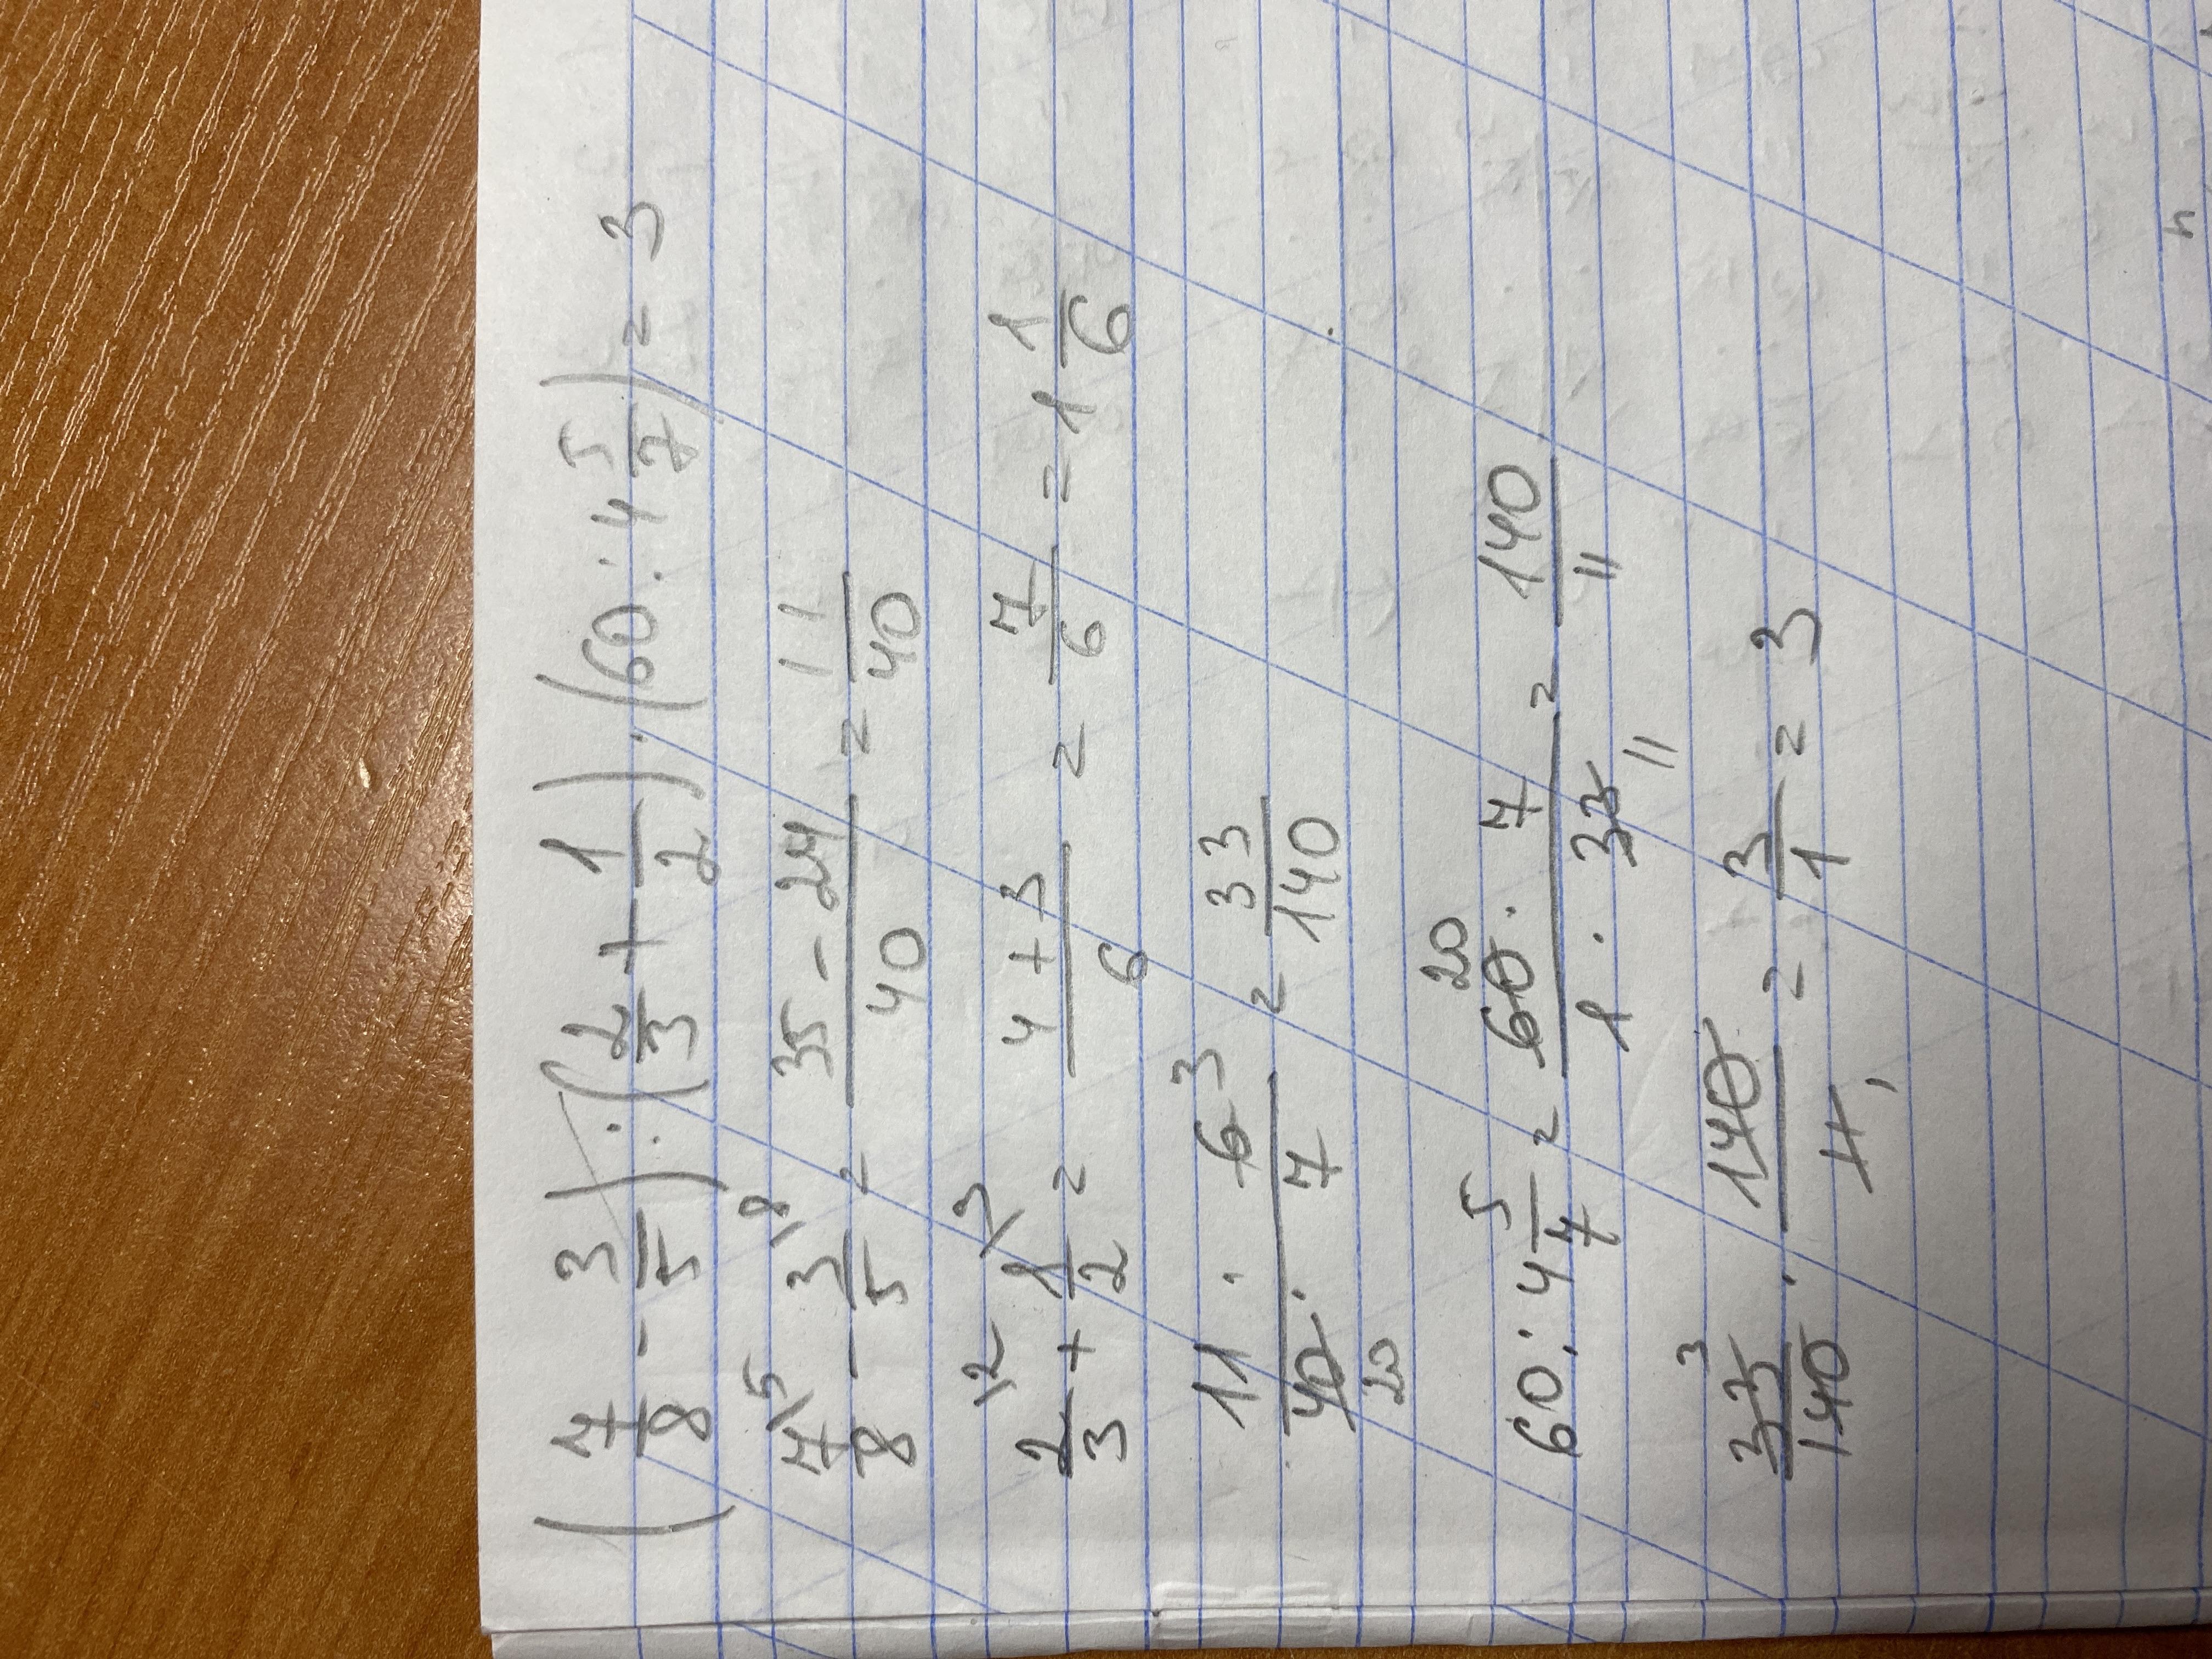 (7/8 - 3/5) : (2/3 + 1/2) · (60 : 4 5/7) = 3
7\5/8 - 3\8/5 = 35 - 24/40 = 11/40
2\2/3 + 1\3/2 = 4 + 3/6 = 7/6 = 1 1/6
11 · 6 3/40 20 · 7 = 33/140
60 : 4 5/7 = 60 20 · 7/1 · 33 11 = 140/11
33 3/140 · 140/11 1 = 3/1 = 3